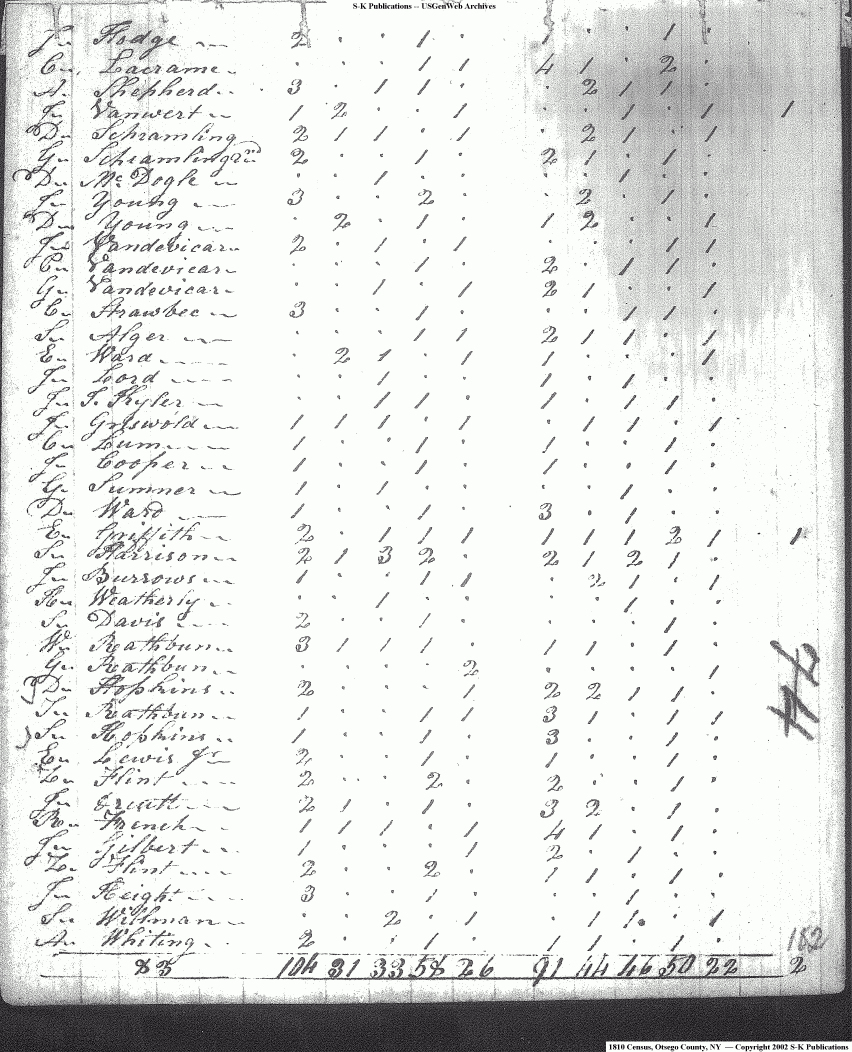 S-K Publications -- USGenWeb Archives
J. Hodge 2 . . 1 . 1 . . 1 .
C. Lacrame . . . 1 1 4 1 . 2 .
A. Shepherd 3 . 1 1 . . 2 1 1 .
J. Vanwert 1 2 . . 1 . . 1 . 1 1
D. Schramling 2 1 1 . 1 . 2 1 . 1
G. Schramling 2 . . 1 . 2 1 . 1 .
D. Mc Dogle . . 1 . . . . 1 . .
J. Young 3 . . 2 . . 2 . 1 .
D. Young . 2 . 1 . 1 2 . . 1
J. Vandevicar 2 . 1 . 1 . . . 1 1
C. Vandevicar . . . 1 . 2 . 1 1 .
G. Vandevicar . . 1 . 1 2 1 . . 1
C. Strawbec 3 . . 1 . . . 1 1 .
S. Alger . . . 1 1 2 1 1 . 1
E. Ward . 2 1 . 1 1 . . . 1
J. Lord . . 1 . . 1 . 1 . .
J. S. Kyler . . 1 1 . 1 . 1 1 .
J. Griswold 1 1 1 1 . 1 1 1 . 1 . 1
C. Lum 1 . . 1 . 1 . . 1 .
J. Cooper 1 . . 1 . 1 . . 1 .
G. Sumner 1 . 1 . . . . 1 . .
D. Ward 1 . . 1 . 3 . 1 . .
E. Griffith 2 . 1 1 1 1 1 1 2 1 1
S. Harrison 2 1 3 2 . 2 1 2 1 .
J. Burrows 1 . . 1 1 . 2 1 . 1
Weatherly . . 1 . . . . 1 . .
S. Davis 2 . . 1 . . . . 1 .
W. Rathbun 3 1 1 1 . 1 1 . 1 .
G. Rathbun . . . . 2 . . . . 1
D. Hopkins 2 . . . 1 2 2 1 1 .
J. Rathbun 1 . . 1 1 3 1 . 1 1
S. Hopkins 1 . . 1 . 3 . . 1 .
E. Lewis Jr 2 . . 1 . 1 . . 1 .
Z. Flint 2 . . 2 . 2 . . 1 .
J. 2 1 . 1 . 3 2 . 1 .
R. French 1 1 1 . 1 4 1 . 1 .
J. Gilbert 1 . . . 1 2 . 1 . .
Z. Flint 2 . . 2 . 1 1 . 1 .
J. Height 3 . . 1 . . . 1 . .
S. Willman . . 2 . 1 . 1 1 . 1
A. Whiting 2 . . 1 . 1 1 . 1 .
182
83 104 31 33 58 26 91 44 46 50 22 2
1810 Census, Otsego County, NY — Copyright 2002 S-K Publications